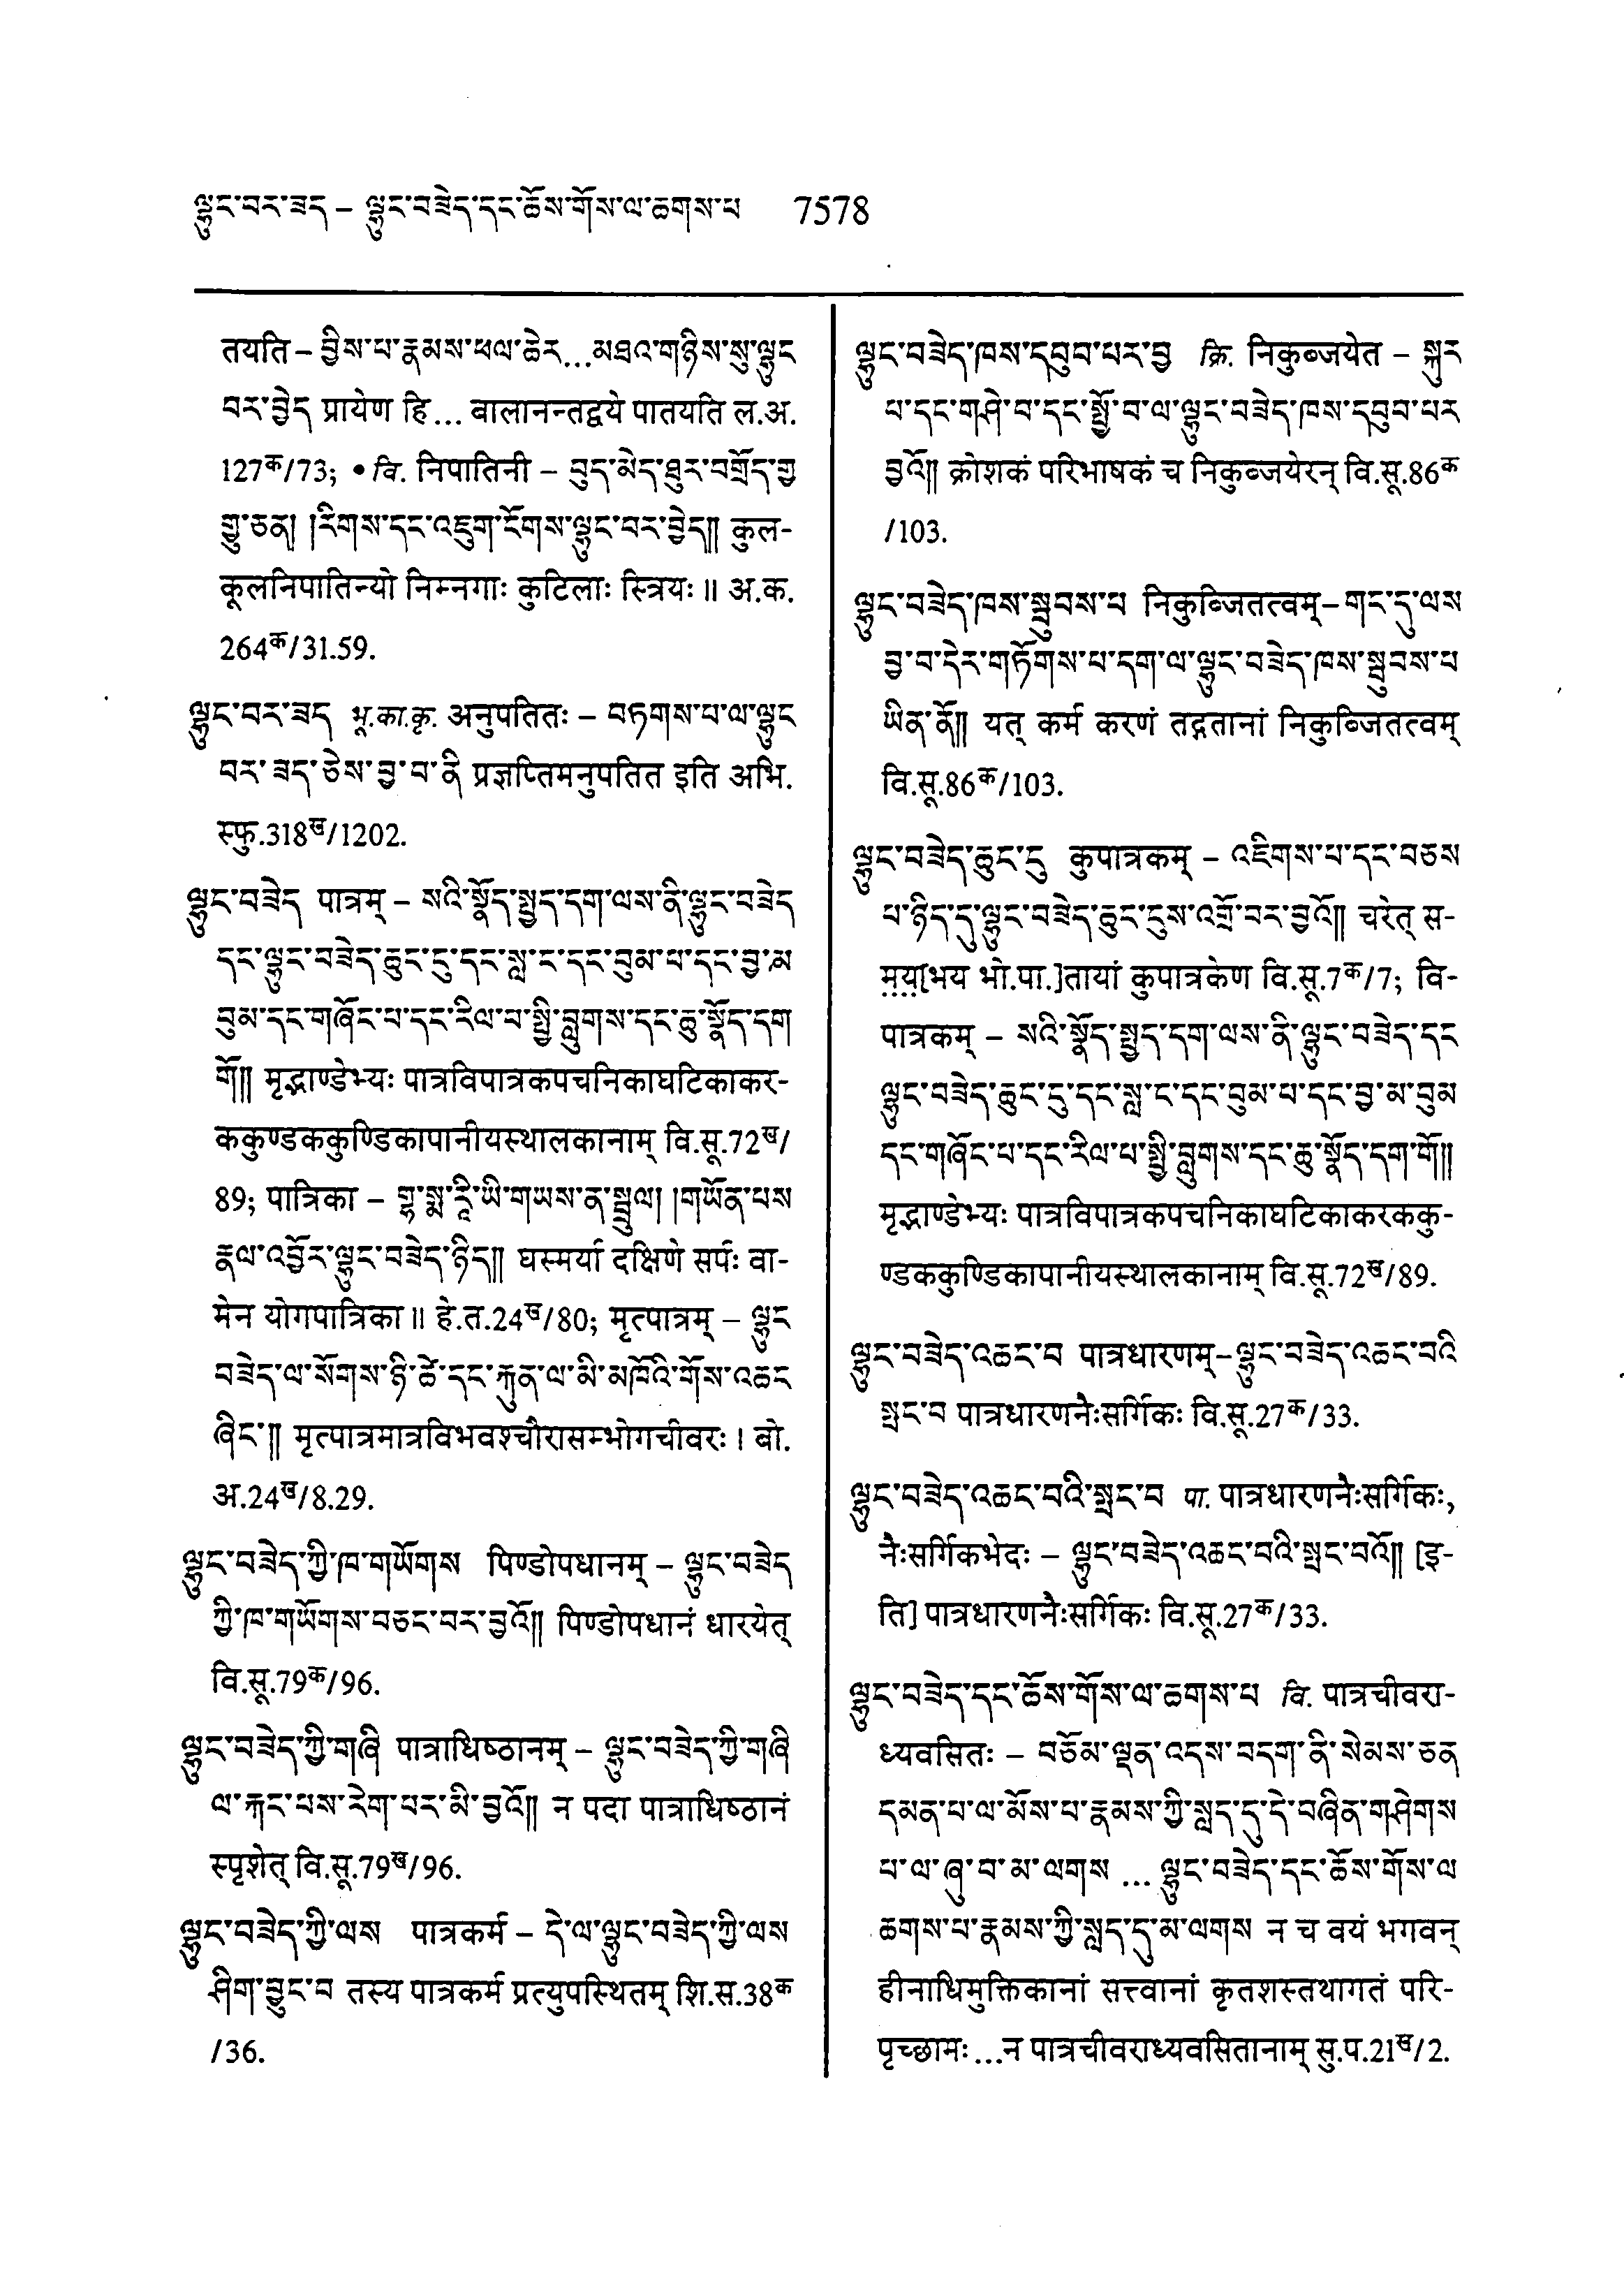 ལྷུང་བར་ཟད – ལྷུང་བཟེད་དང་ཆོས་གོས་ལ་ཆགས་པ 7578
तयति – བྱིས་པ་རྣམས་ཕལ་ཆེར...མཐའ་གཉིས་སུ་ལྷུང
བར་བྱེད प्रायेण हि ... बालानन्तद्वये पातयति ल.अ.
127क/73; • वि. निपातिनी – བུད་མེད་ཐུར་བགྲོད་གྱ
གྱུ་ཅན། །རིགས་དང་འཇུག་ངོགས་ལྷུང་བར་བྱེད།། कुल-
कूलनिपातिन्यो निम्नगाः कुटिलाः स्त्रियः ॥ अ.क.
264क/31.59.
ལྷུང་བར་ཟད भू.का.कृ. अनुपतितः – བཏགས་པ་ལ་ལྷུང
བར་ཟད་ཅེས་བྱ་བ་ནི प्रज्ञप्तिमनुपतित इति अभि.
स्फु.318ख/1202.
ལྷུང་བཟེད पात्रम् – སའི་སྣོད་སྤྱད་དག་ལས་ནི་ལྷུང་བཟེད
དང་ལྷུང་བཟེད་ཆུང་ངུ་དང་སླ་ང་དང་བུམ་པ་དང་བྱ་མ
བུམ་དང་གཞོང་པ་དང་རིལ་པ་སྤྱི་བླུགས་དང་ཆུ་སྣོད་དག
གོ།། मृद्भाण्डेभ्यः पात्रविपात्रकपचनिकाघटिकाकर-
ककुण्डककुण्डिकापानीयस्थालकानाम् वि.सू.72ख/
89; पात्रिका – གྷ་སྨ་རཱི་ཡི་གཡས་ན་སྦྲུལ། །གཡོན་པས
རྣལ་འབྱོར་ལྷུང་བཟེད་ཉིད།། घस्मर्या दक्षिणे सर्पः वा-
मेन योगपात्रिका ॥ हे.त.24ख/80; मृत्पात्रम् – ལྷུང
བཟེད་ལ་སོགས་ཉི་ཚེ་དང་རྐུན་ལ་མི་མཁོའི་གོས་འཆང
ཞིང་།། मृत्पात्रमात्रविभवश्चौरासम्भोगचीवरः । बो.
अ.24ख/8.29.
ལྷུང་བཟེད་ཀྱི་ཁ་གཡོགས पिण्डोपधानम् – ལྷུང་བཟེད
ཀྱི་ཁ་གཡོགས་བཅང་བར་བྱའོ།། पिण्डोपधानं धारयेत्
वि.सू.79क/96.
ལྷུང་བཟེད་ཀྱི་གཞི पात्राधिष्ठानम् – ལྷུང་བཟེད་ཀྱི་གཞི
ལ་རྐང་པས་རེག་པར་མི་བྱའོ།། न पदा पात्राधिष्ठानं
स्पृशेत् वि.सू.79ख/96.
ལྷུང་བཟེད་ཀྱི་ལས पात्रकर्म – དེ་ལ་ལྷུང་བཟེད་ཀྱི་ལས
ཤིག་བྱུང་བ तस्य पात्रकर्म प्रत्युपस्थितम् शि.स.38क
/36.
ལྷུང་བཟེད་ཁས་དབུབ་པར་བྱ क्रि. निकुब्जयेत – སྐུར
པ་དང་གཤེ་བ་དང་སྤྱོ་བ་ལ་ལྷུང་བཟེད་ཁས་དབུབ་པར
བྱའོ།། क्रोशकं परिभाषकं च निकुब्जयेरन् वि.सू.86क
/103.
ལྷུང་བཟེད་ཁས་སྦུབས་པ निकुब्जितत्वम् – གང་དུ་ལས
བྱ་བ་དེར་གཏོགས་པ་དག་ལ་ལྷུང་བཟེད་ཁས་སྦུབས་པ
ཡིན་ནོ།། यत् कर्म करणं तद्गतानां निकुब्जितत्वम्
वि.सू.86क/103.
ལྷུང་བཟེད་ཆུང་ངུ कुपात्रकम् – འཇིགས་པ་དང་བཅས
པ་ཉིད་དུ་ལྷུང་བཟེད་ཆུང་ངུས་འགྲོ་བར་བྱའོ།། चरेत् स-
मय[भय भो.पा.]तायां कुपात्रकेण वि.सू.7क/7; वि-
पात्रकम् – སའི་སྣོད་སྤྱད་དག་ལས་ནི་ལྷུང་བཟེད་དང
ལྷུང་བཟེད་ཆུང་ངུ་དང་སླ་ང་དང་བུམ་པ་དང་བྱ་མ་བུམ
དང་གཞོང་པ་དང་རིལ་པ་སྤྱི་བླུགས་དང་ཆུ་སྣོད་དག་གོ།།
मृद्भाण्डेभ्यः पात्रविपात्रकपचनिकाघटिकाकरककु-
ण्डककुण्डिकापानीयस्थालकानाम् वि.सू.72ख/89.
ལྷུང་བཟེད་འཆང་བ पात्रधारणम् – ལྷུང་བཟེད་འཆང་བའི
སྤང་བ पात्रधारणनैःसर्गिकः वि.सू.27क/33.
ལྷུང་བཟེད་འཆང་བའི་སྤང་བ पा. पात्रधारणनैःसर्गिकः,
नैःसर्गिकभेदः – ལྷུང་བཟེད་འཆང་བའི་སྤང་བའོ།། [इ-
ति] पात्रधारणनैःसर्गिकः वि.सू.27क/33.
ལྷུང་བཟེད་དང་ཆོས་གོས་ལ་ཆགས་པ वि. पात्रचीवरा-
ध्यवसितः – བཅོམ་ལྡན་འདས་བདག་ནི་སེམས་ཅན
དམན་པ་ལ་མོས་པ་རྣམས་ཀྱི་སླད་དུ་དེ་བཞིན་གཤེགས
པ་ལ་ཞུ་བ་མ་ལགས ... ལྷུང་བཟེད་དང་ཆོས་གོས་ལ
ཆགས་པ་རྣམས་ཀྱི་སླད་དུ་མ་ལགས न च वयं भगवन्
हीनाधिमुक्तिकानां सत्त्वानां कृतशस्तथागतं परि-
पृच्छामः ...न पात्रचीवराध्यवसितानाम् सु.प.21ख/2.